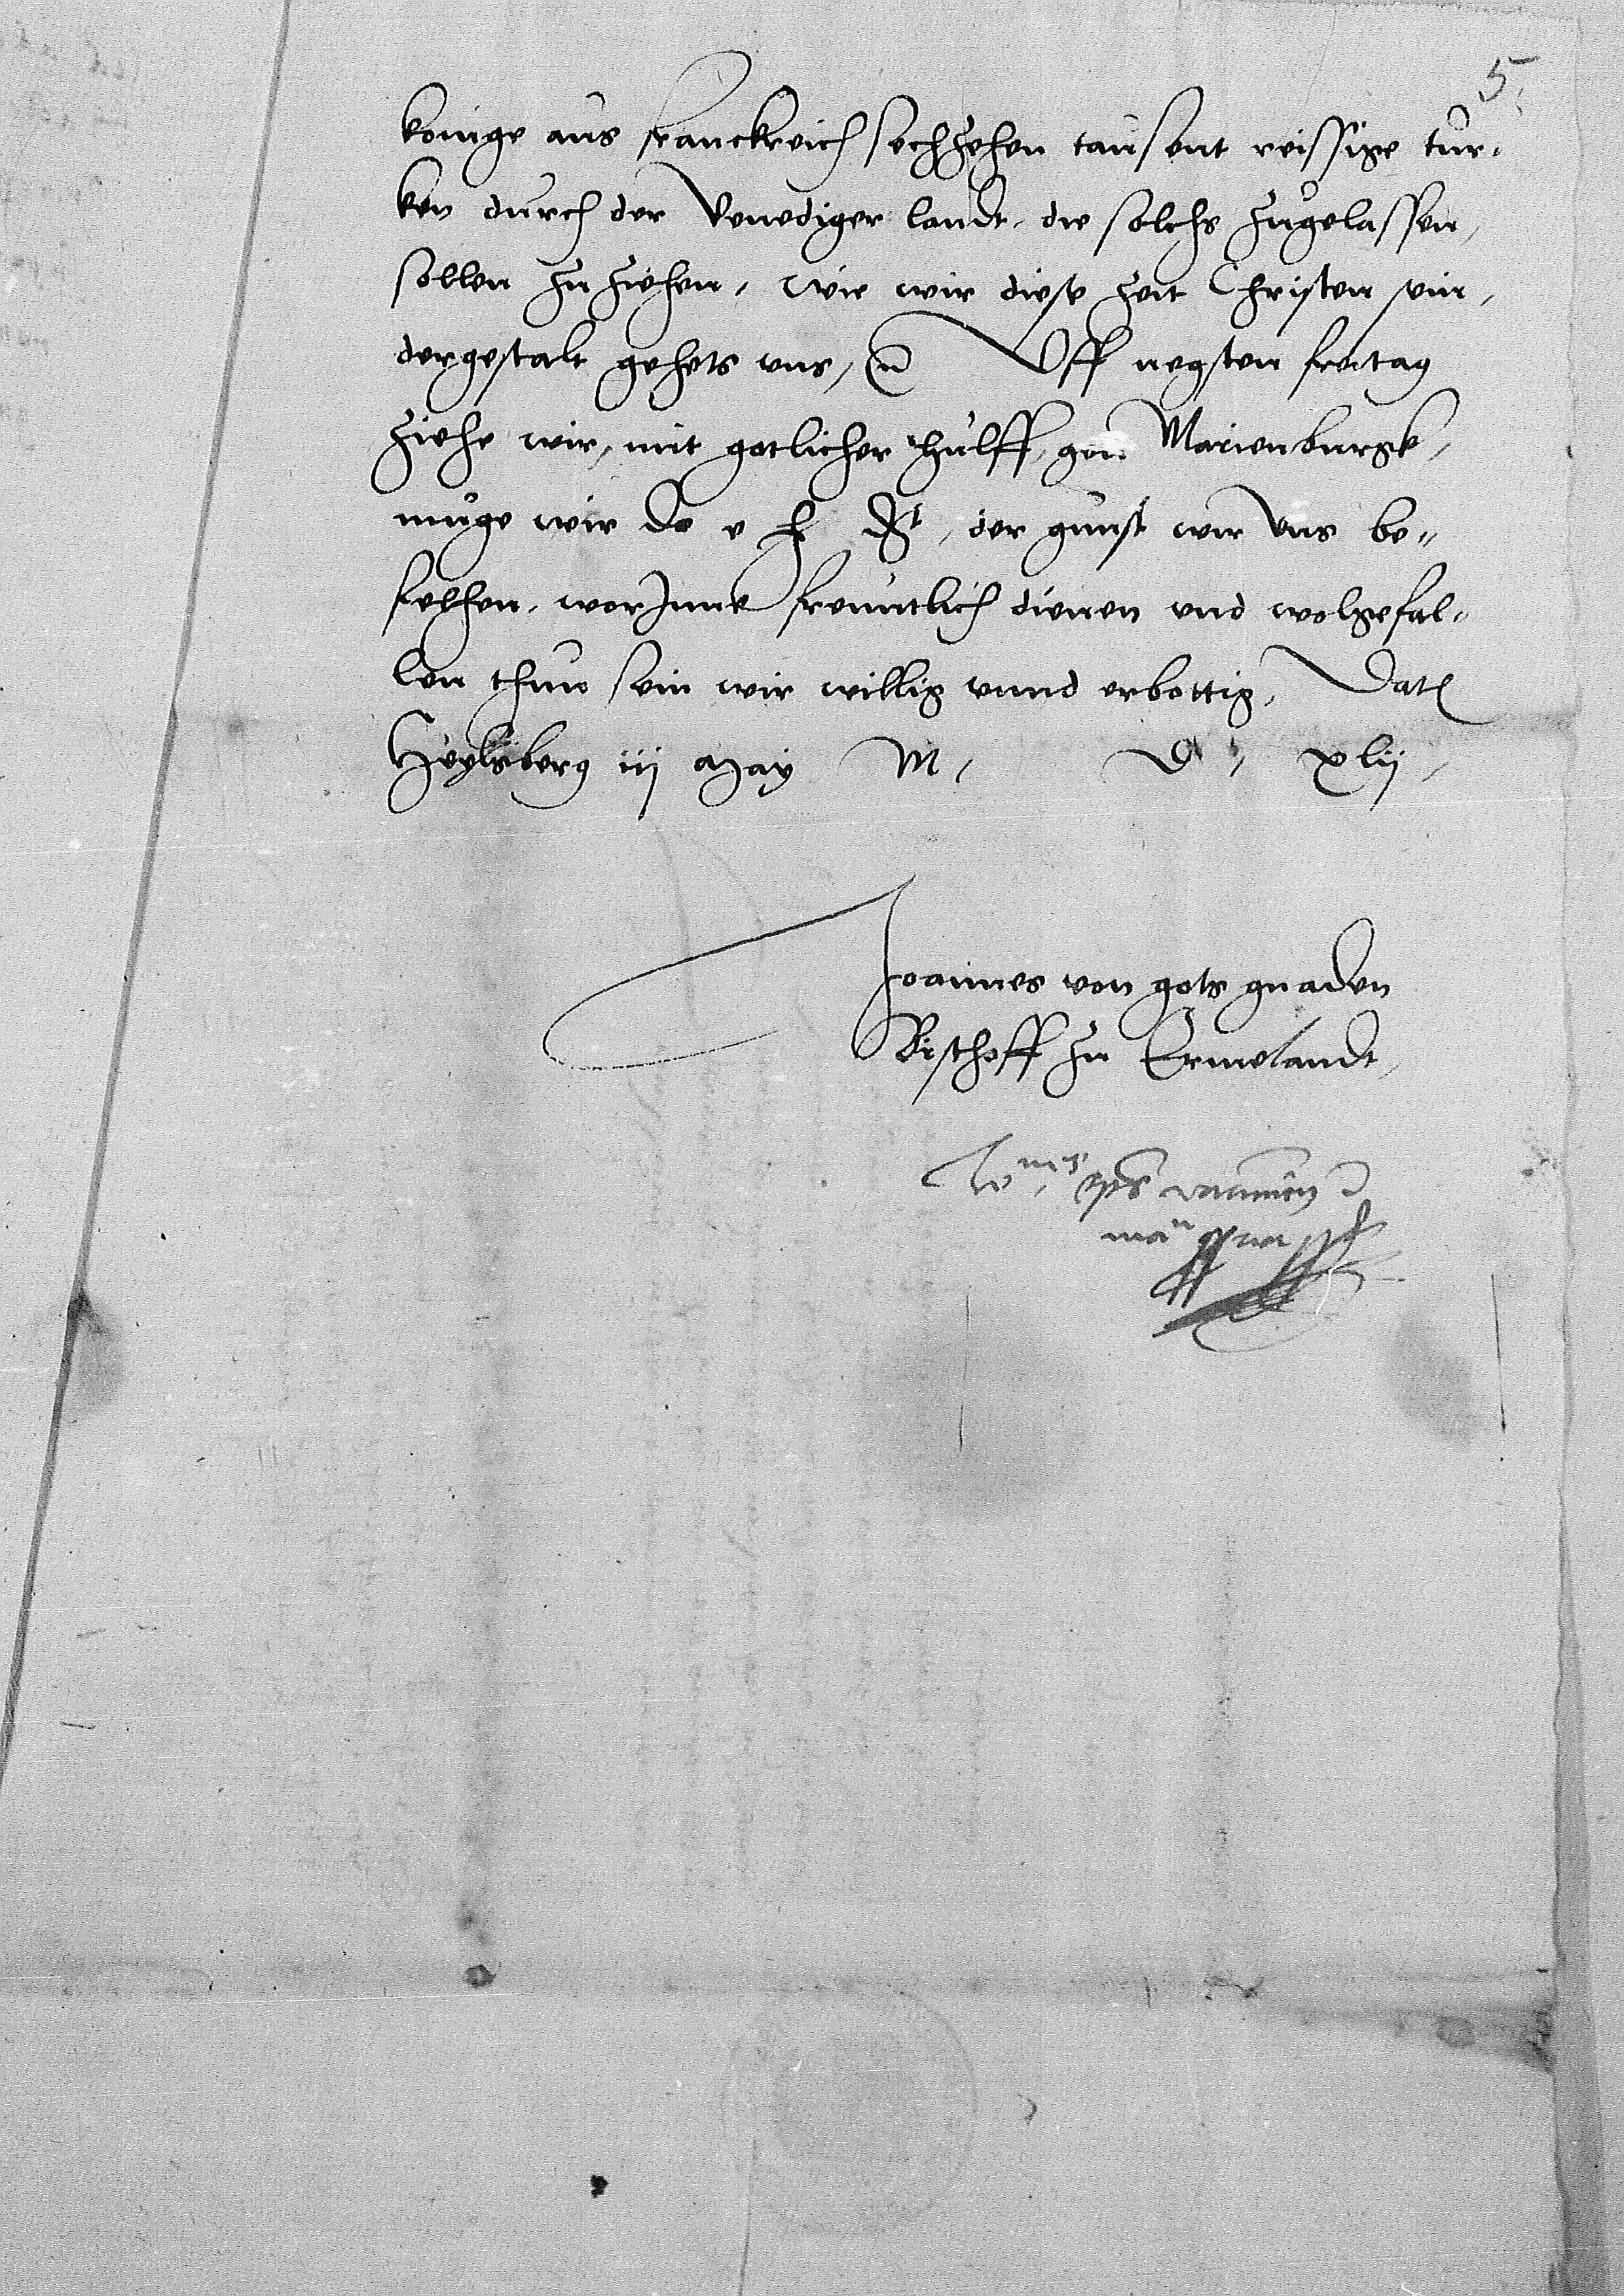 5
konige aus franckreich sechzehen tausent reissige tur-
ken durch der Venediger landt, die solchs zugelassen,
sollen zu ziehen, wie wir diese zeit Christen sein,
dergestalt gehets uns, Uff negsten freitag
ziehe wir, mit gotlicher hulff, gen Marienburgk,
muge wir do e f Dt, der gunst wir uns be-
felhen, worinne freuntlich dienen und wolgefal-
len thun sein wir willig unnd erbottig, Dat
Heylsberg iij May M, D, xlij,
Joannes von gots gnaden
Bischoff zu Ermelandt,
Jo eps warmien